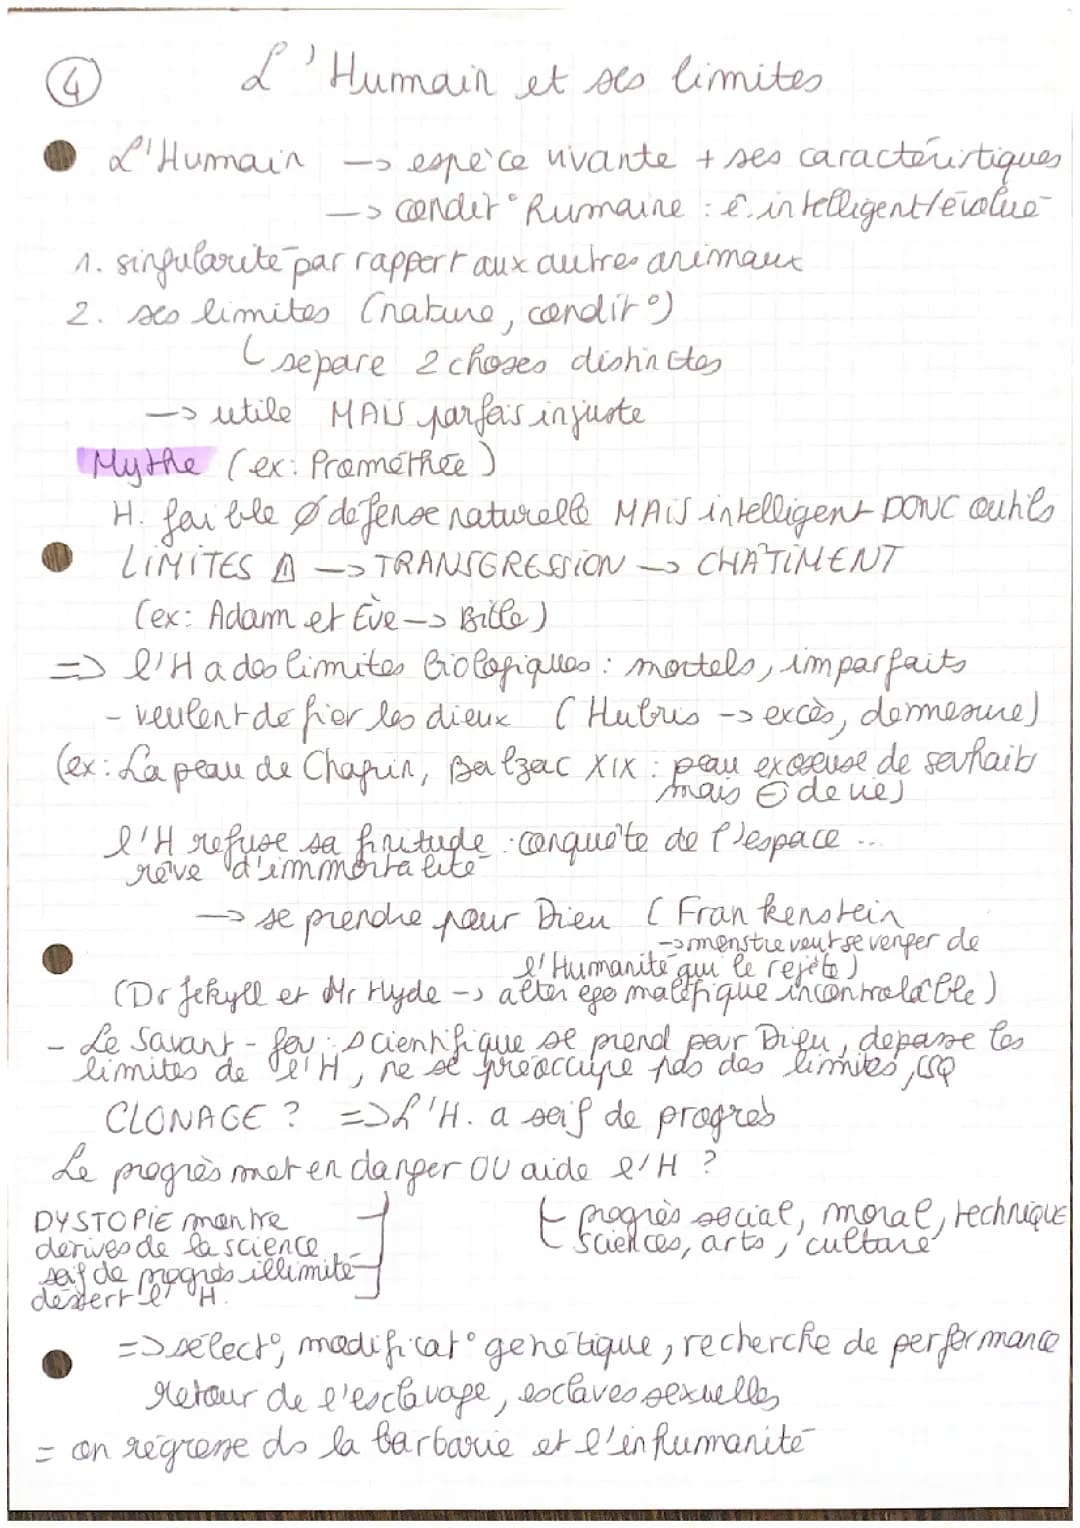 ④ L'Humain et ses limites
L'Humain -> espèce vivante + ses caractéristiques
-> condit° humaine : ê. intelligent/évolué
1. singularité par rapport aux autres animaux
2. ses limites (nature, condit°)
séparé 2 choses distinctes
-> utile MAIS parfois injuste
Mythe (ex: Prométhée)
H. faible ∅ défense naturelle MAIS intelligent DONC outils
LIMITES ⚠ -> TRANSGRESSION -> CHÂTIMENT
(ex: Adam et Ève -> Bible)
=> l'H a des limites biologiques : mortels, imparfaits
- veulent défier les dieux (Hubris -> excès, démesure)
(ex: La peau de Chagrin, Balzac XIX : peau exauseuse de souhaits
mais ⊖ de vie)
l'H refuse sa finitude : conquête de l'espace ...
rêve d'immortalité
-> se prendre pour Dieu (Frankenstein
-> monstre veut se venger de
l'Humanité qui le rejète)
(Dr Jekyll et Mr Hyde -> alter ego maléfique incontrolable)
- Le savant-fou : scientifique se prend pour Dieu, dépasse les
limites de l'H, ne se préoccupe pas des limites, CSQ
CLONAGE ? => L'H. a soif de progrès
Le progrès met en danger OU aide l'H ?
DYSTOPIE montre
dérives de la science
soif de progrès illimité
déssert l'H.
progrès social, moral, technique
sciences, arts, culture
=> sélect°, modificat° génétique, recherche de performance
retour de l'esclavage, esclaves sexuelles
= on régresse ds la barbarie et l'inhumanité